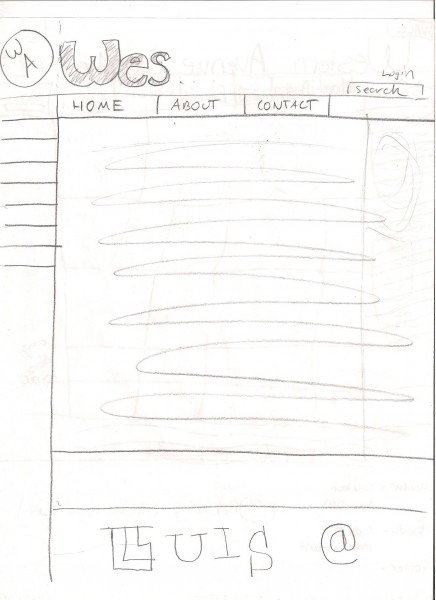 WA
Wes
Login
search
HOME ABOUT CONTACT
LUIS @